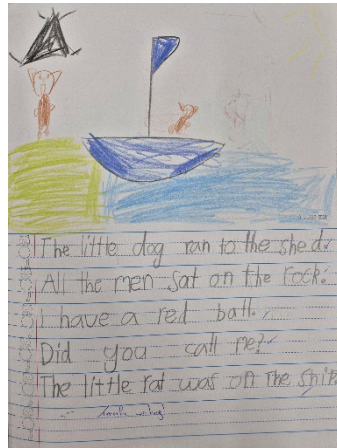 The little dog ran to the shed.
All the men sat on the rock.
I have a red ball.
Did you call me?
The little rat was on the ship.